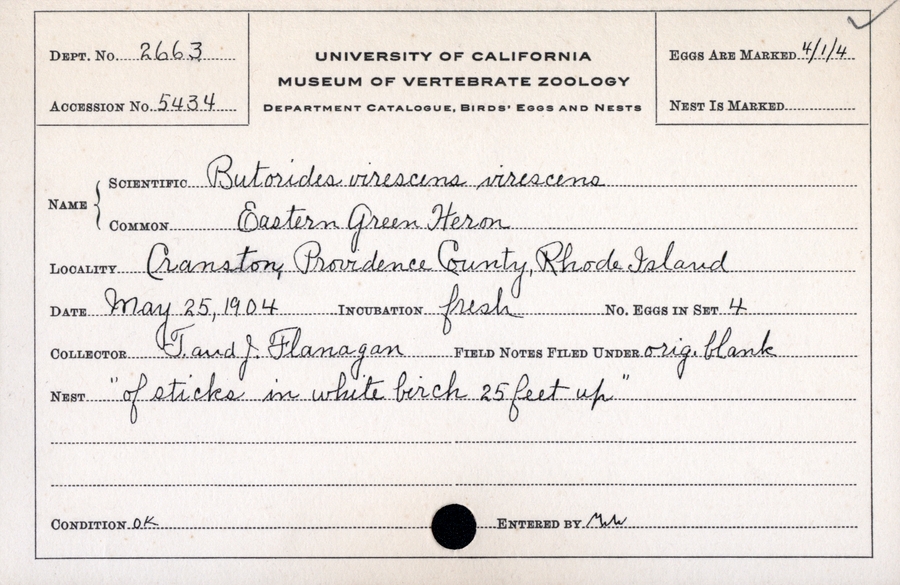 Dept. No. 2663
Accession No. 5434
University of California
Museum of Vertebrate Zoology
Department Catalogue, Birds' Eggs and Nests
Eggs Are Marked 4/1/4
Nest Is Marked
Name
Scientific Butorides virescens virescens
Common Eastern Green Heron
Locality Cranston, Providence County, Rhode Island
Date May 25, 1904 Incubation fresh No. Eggs in Set 4
Collector T. and J. Flanagan Field Notes Filed Under orig. blank
Nest "of sticks in white birch 25 feet up"
Condition OK Entered by